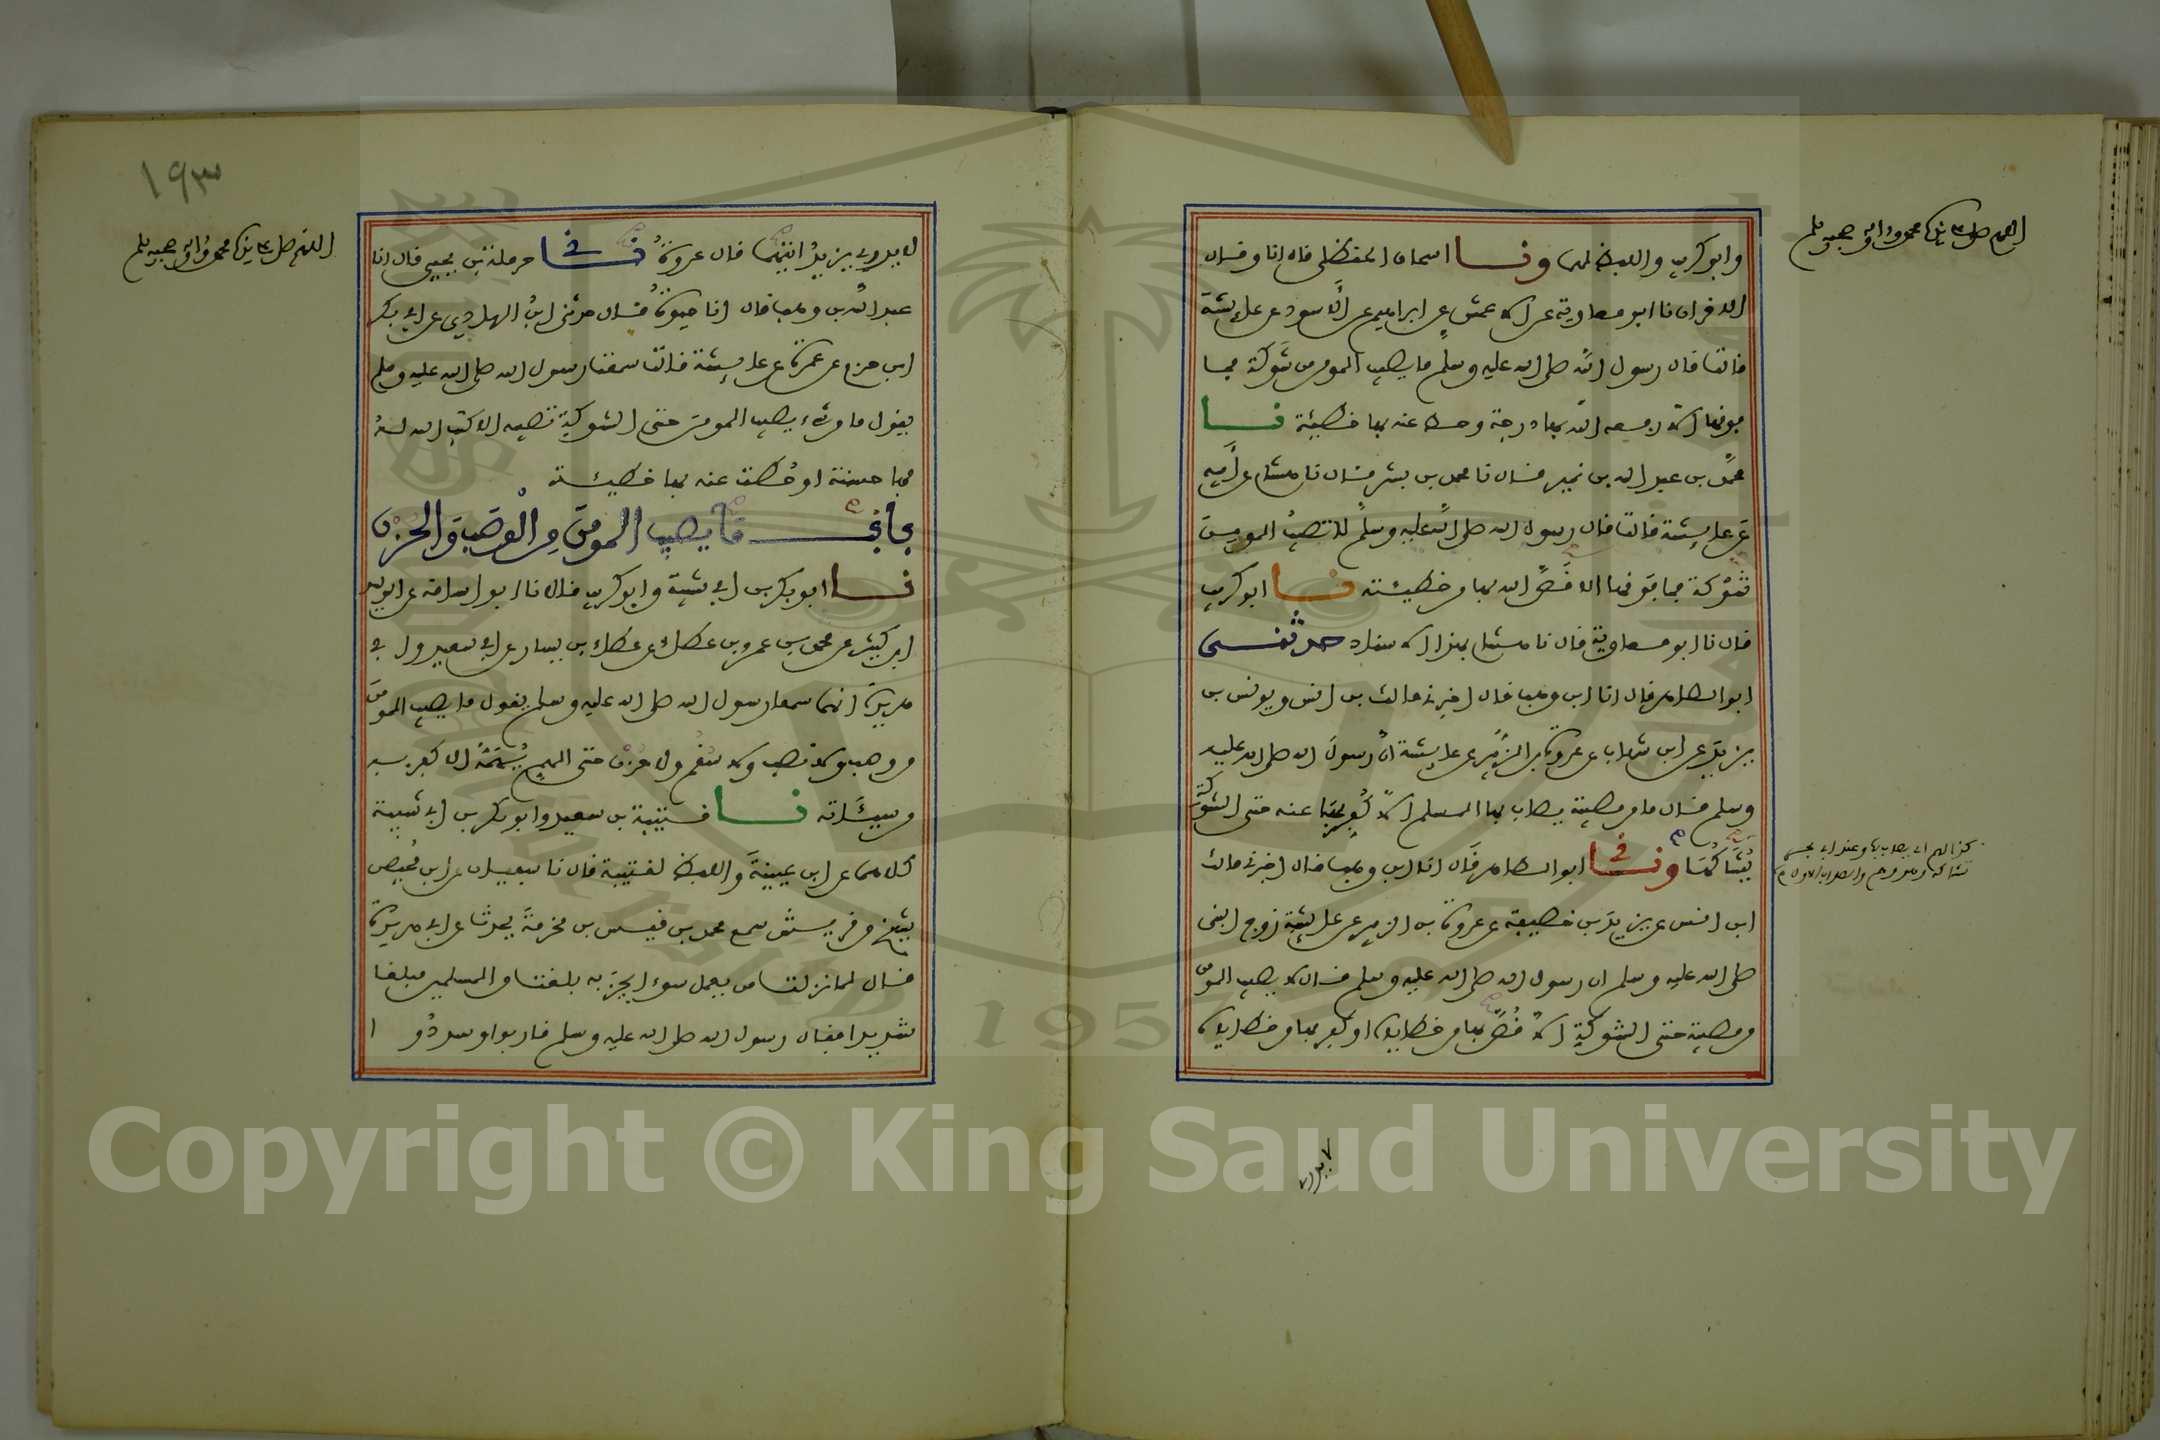 اللهم صل على سيدنا محمد واله وصحبه وسلم
وابو كريب واللفظ لهما ونا اسحاق الحنظلي قال انا وقال
الاخران نا ابو معاوية عن الاعمش عن ابراهيم عن الاسود عن عايشة
قالت قال رسول الله صلى الله عليه وسلم ما يصيب المومن من شوكة فما
فوقها الا رفعه الله بها درجة وحط عنه بها خطيئة نا
محمد بن عبد الله بن نمير قال نا محمد بن بشر قال نا هشام عن ابيه
عن عايشة قالت قال رسول الله صلى الله عليه وسلم لا تصيب المومن
شوكة فما فوقها الا قص الله بها من خطيئته نا ابو كريب
قال نا ابو معاوية قال نا هشام بهذا الاسناد حدثني
ابو الطاهر قال انا ابن وهب قال اخبرني مالك بن انس ويونس بن
يزيد عن ابن شهاب عن عروة بن الزبير عن عايشة ان رسول الله صلى الله عليه
وسلم قال ما من مصيبة يصاب بها المسلم الا كفر بها عنه حتى الشوكة
يشاكها ونا ابو الطاهر قال انا ابن وهب قال اخبرني مالك
ابن انس عن يزيد بن خصيفة عن عروة بن الزبير عن عايشة زوج النبي
صلى الله عليه وسلم ان رسول الله صلى الله عليه وسلم قال لا يصيب المومن
من مصيبة حتى الشوكة الا قص بها من خطاياه او كفر بها من خطاياه
لا يدري
١٩٣
اللهم صل على سيدنا محمد واله وصحبه وسلم
لا يدري يزيد ايتهما قال عروة نا حرملة بن يحيى قال انا
عبد الله بن وهب قال انا حيوة قال حدثني ابن الهادي عن ابي بكر
ابن حزم عن عمرة عن عايشة قالت سمعت رسول الله صلى الله عليه وسلم
يقول ما من شيء يصيب المومن حتى الشوكة تصيبه الا كتب الله له
بها حسنة او حطت عنه بها خطيئة
باب ما يصيب المومن من الوصب والحزن
نا ابو بكر بن ابي شيبة وابو كريب قالا نا ابو اسامة عن الوليد
ابن كثير عن محمد بن عمرو بن عطاء عن عطاء بن يسار عن ابي سعيد وابي
هريرة انهما سمعا رسول الله صلى الله عليه وسلم يقول ما يصيب المومن
من وصب ولا نصب ولا سقم ولا حزن حتى الهم يهمه الا كفر به
من سيئاته نا قتيبة بن سعيد وابو بكر بن ابي شيبة
كلاهما عن ابن عيينة واللفظ لقتيبة قال نا سفيان عن ابن محيصن
شيخ من قريش سمع محمد بن قيس بن مخرمة يحدث عن ابي هريرة
قال لما نزلت من يعمل سوءا يجز به بلغت من المسلمين مبلغا
شديدا فقال رسول الله صلى الله عليه وسلم قاربوا وسددوا
Copyright © King Saud University
1957